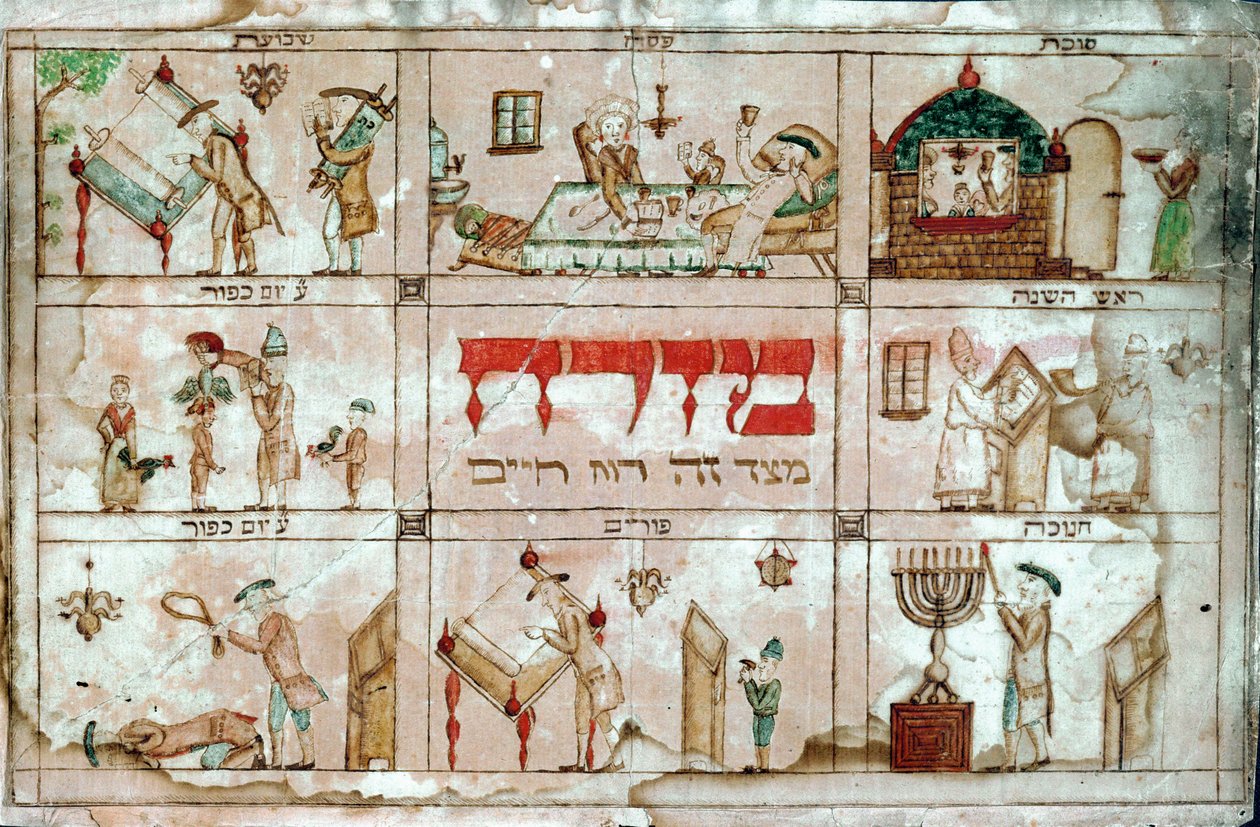 סוכת
פסח
שבועת
ראש השנה
ע׳ יום כפור
מזרח
מצד זה רוח חיים
חנוכה
פורים
ע׳ יום כפור